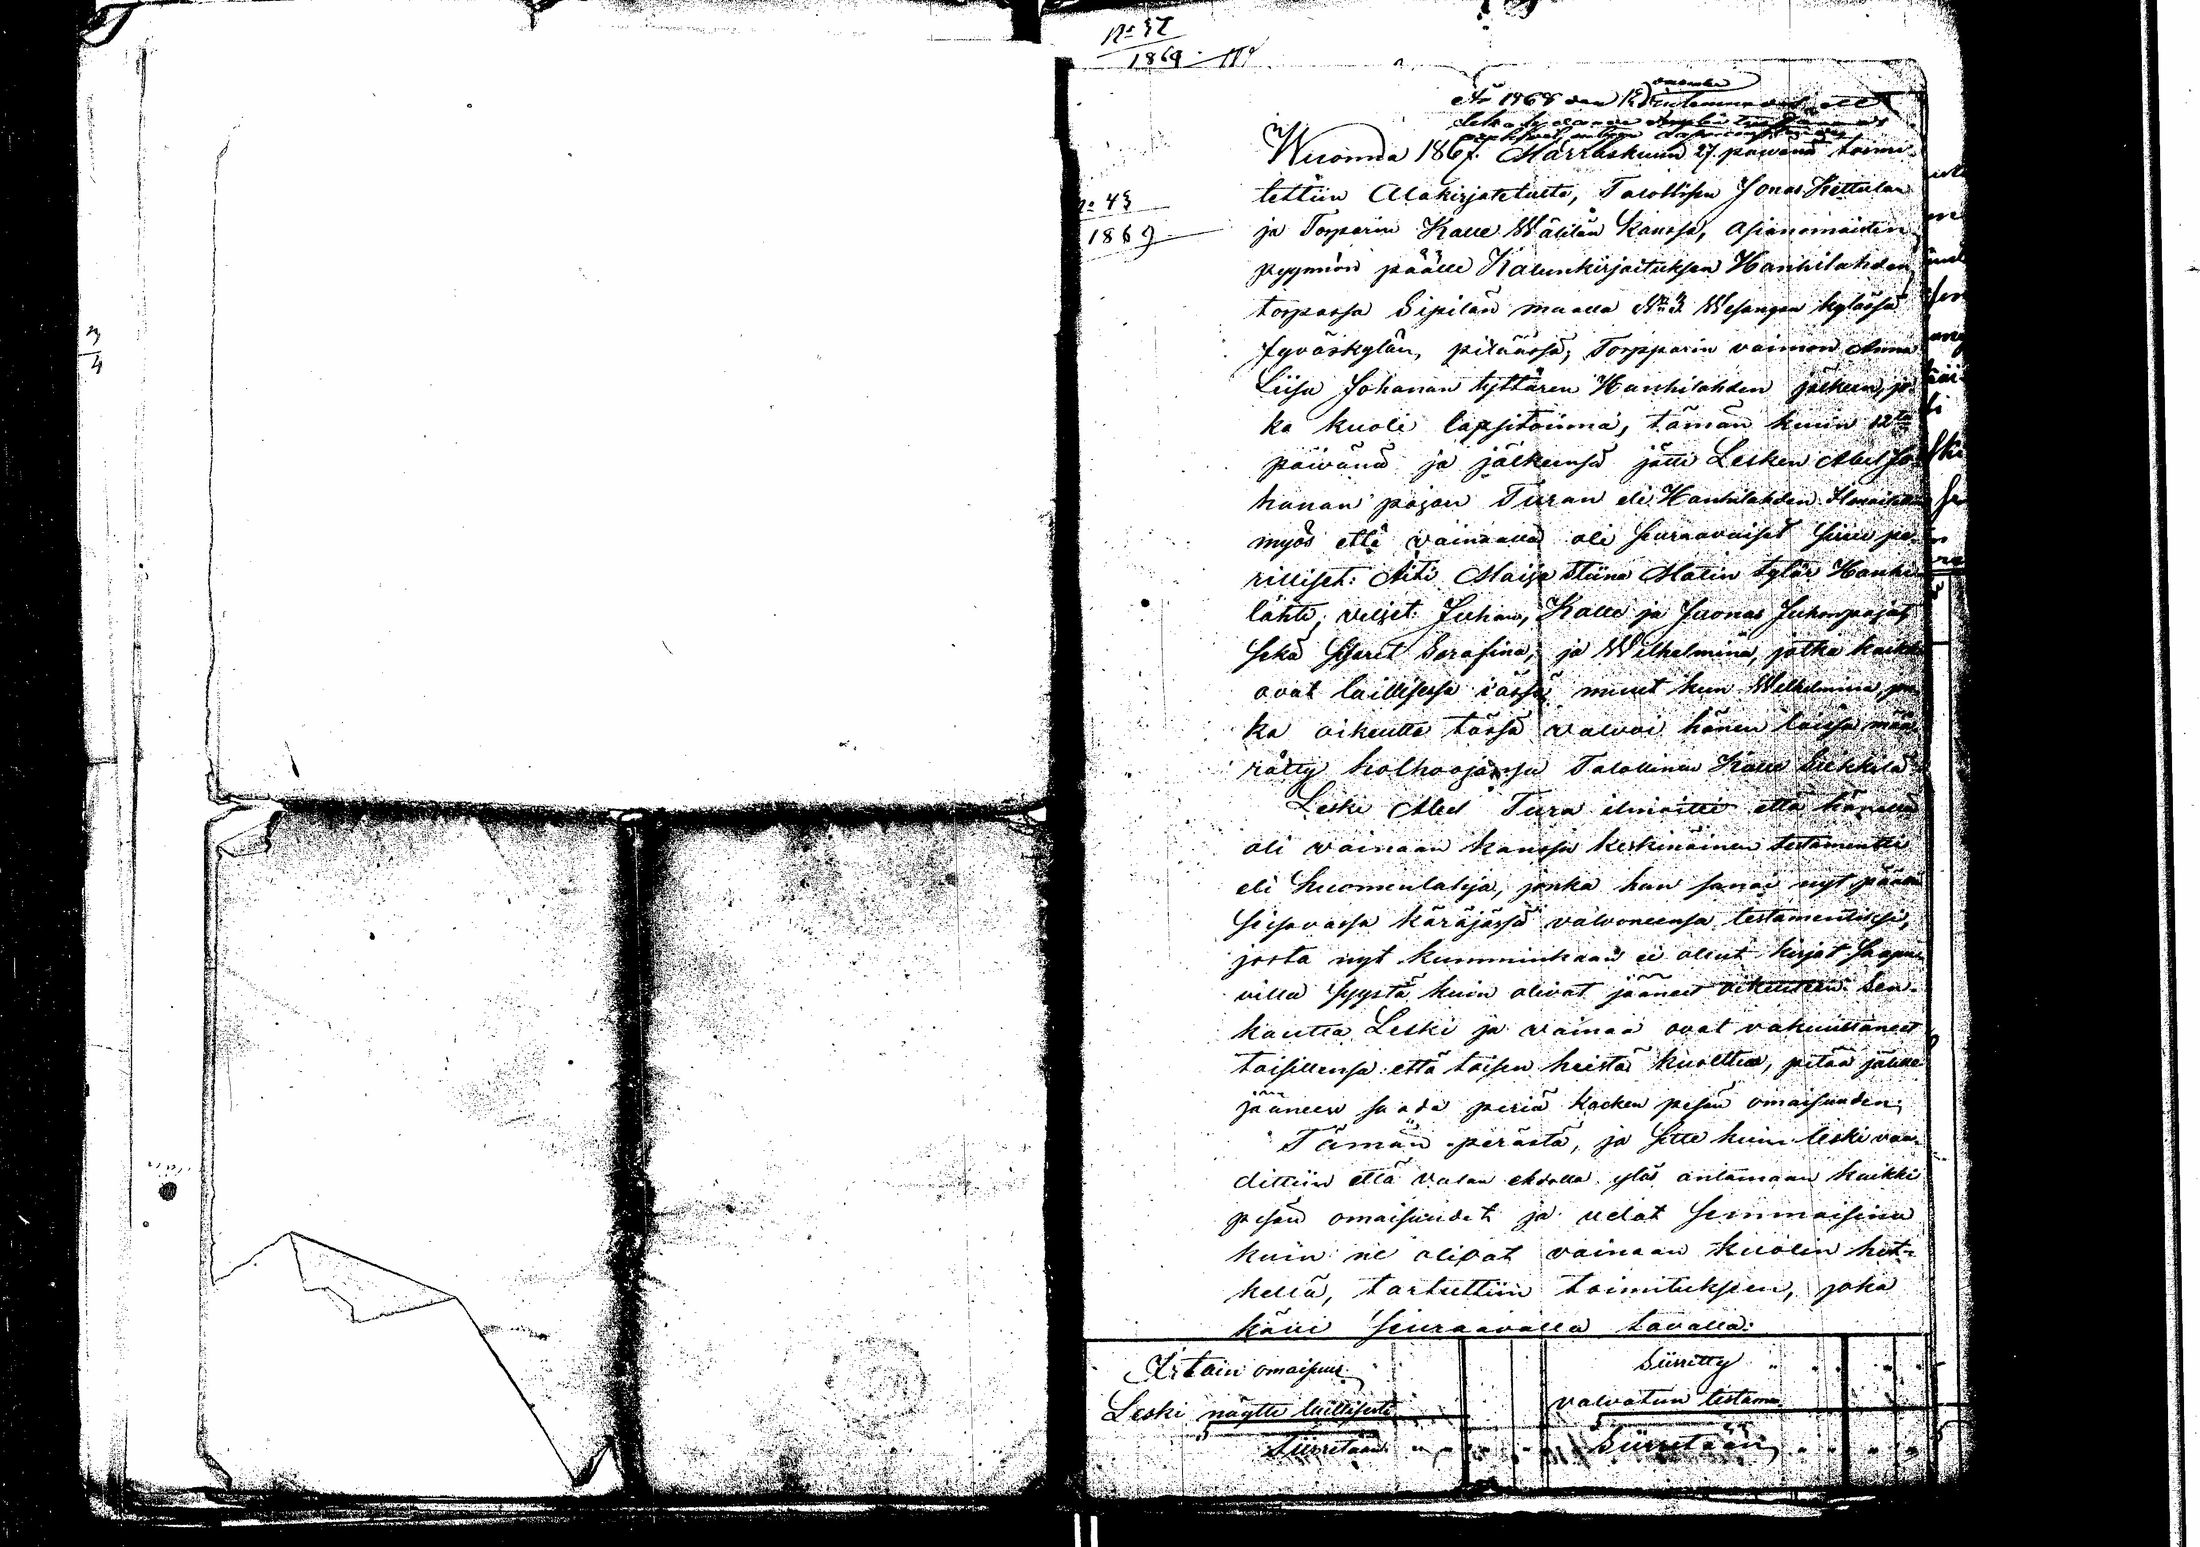 No 37
1869
No 43
1869
3
4
År 1868 den
Wuonna 1867. Marraskuun 27. päivänä toimi-
tettiin Alakirjotetulta, Talollisen Jonas Kettulan
ja Torparin Kalle Wälilän kanssa, asianomaisten
pyynnön päälle Kalunkirjoituksen Hanhilahden
torpassa Sipilän maalla No 3 Wesangan kylässä
Jyväskylän, pitäässä, Torpparin vaimon Anna
Liisa Johanan tyttären Hanhilahden jälkeen, jo-
ka kuoli lapsitoinna, tämän kuun 12ta
päivänä ja jälkeensä jätti Lesken Abel Jo-
hanan pojan Turan eli Hanhilahden. Ilmoitettiin
myös että vainaalla oli seuraavaiset sisu pe-
rilliset: Aiti Maija Stiina Matin tytär Hanhi-
lahti, veljet: Juhan, Kalle ja Juonas Juhonpojat,
sekä sisaret Serafina, ja Wilhelmina, jotka kaikki
ovat laillisessa iässä muut kun Wilhelmina, jon-
ka oikeutta tässä valvoi hänen laissa mää-
rätty holhoojansa Talollinen Kalle Siekkilä
Leski Abel Tura ilmoitti että hänellä
oli vainaan kanssa keskinäinen testamentti
eli huomenlahja, jonka hän sanoi nyt pääl-
seisovassa käräjässä valvoneensa testamentiksi,
josta nyt kumminkaan ei ollut kirjat saapu-
villa syystä kuin olivat jääneet oikeuteen. Sen-
kautta Leski ja vainaa ovat vakuuttaneet
toisillensa että toisen heistä kuoltua, pitää jälille
jääneen saada periä kaiken pesän omaisuuden,
Tämän perästä, ja sitte kuin leski vaa-
dittiin että valan ehdolla ylös antamaan kaikki
pesän omaisuudet ja velat semmoisina
kuin ne olivat vainaan kuolin het-
kellä, tartuttiin toimituksen, joka
kävi seuraavalla tavalla:
Irtain omaisuus
Siirretty
Leski näytti laillisesti
valvotun testamen
Siirretään
Siirretään